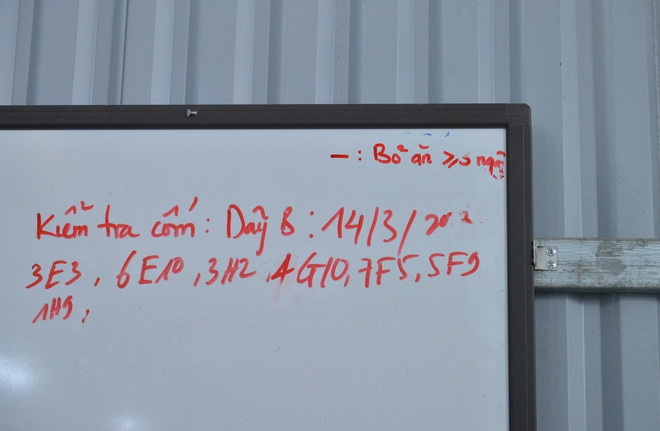 – : Bỏ ăn ≥ 5 ngày
Kiểm tra cốm : Dãy 8 : 14/3/
3E3, 6E10, 3H2, 4G10, 7F5, 5F9
1H9,